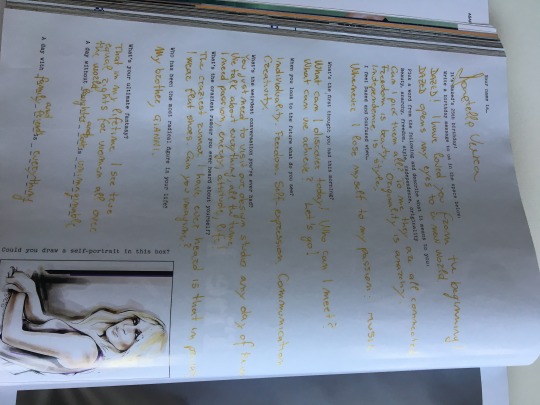 Your name is…
Donatella Versace
It's Dazed's 20th birthday!
Write a birthday message to us in the space below:
Dazed, I have loved you from the beginning
Dazed opens my eyes to a new world
Pick a word from the following and describe what it means to you:
Beauty, anarchy, freedom, style, independence, originality
To me they are all connected
Freedom is beauty, Originality is anarchy,
Independence is style!
I feel Dazed and Confused when…
Whenever I lose myself to my passion: music
What's the first thought you had this morning?
What can I discover today? Who can I meet?
What can we achieve? Let's go!
When you look to the future what do you see?
Creativity Communication
Individuality, Freedom, Self-expression
What's the weirdest conversation you've ever had?
You just need to come to my design studio any day of the
We talk about everything all the time
I need
What's the craziest rumour you ever heard about yourself?
The craziest rumour I have ever heard is that in private
I wear flat shoes. Can you imagine?
Who has been the most radical figure in your life?
My brother, Gianni
What's your ultimate fantasy?
That in my lifetime, I see true
equal rights for women all over
the world
A day without
A day with family, friends and
Could you draw a self-portrait in this box?